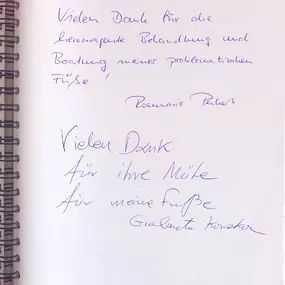 Vielen Dank für die
hervorragende Behandlung und
Beratung meiner problematischen
Füße!
Rosemarie
Vielen Dank
für ihre Mühe
für meine Fuße